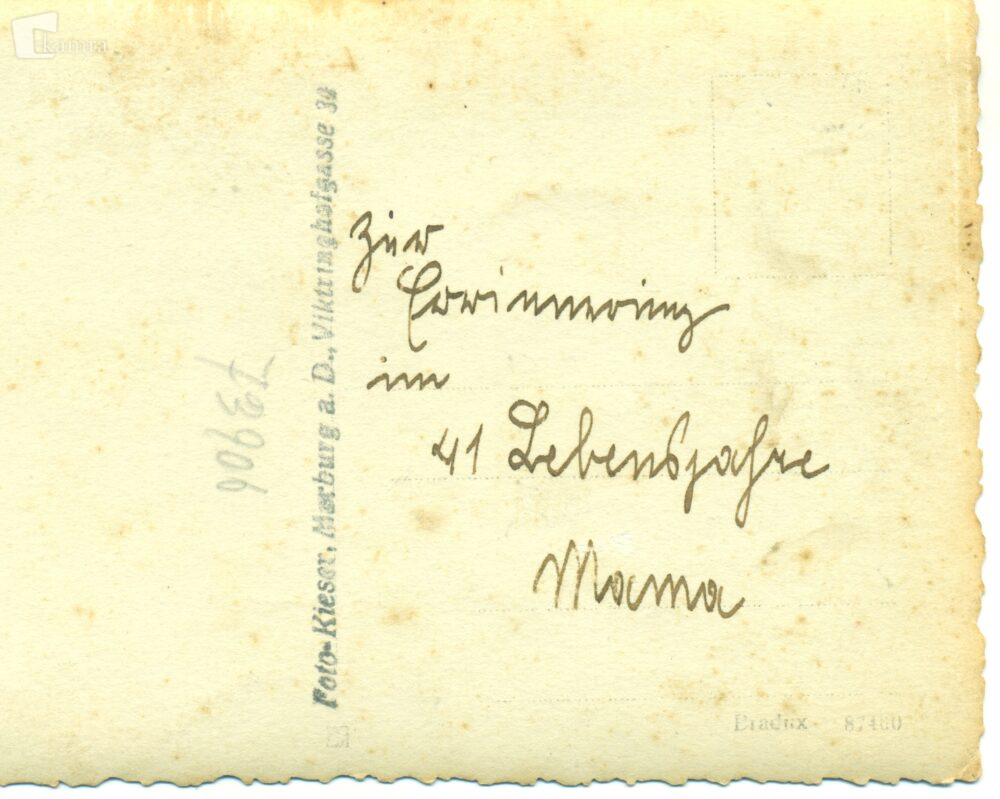 kamra
Foto-Kieser, Marburg a. D., Viktringhofgasse 32
Zur
Errinnerung
im
41 Lebensjahre
Mama